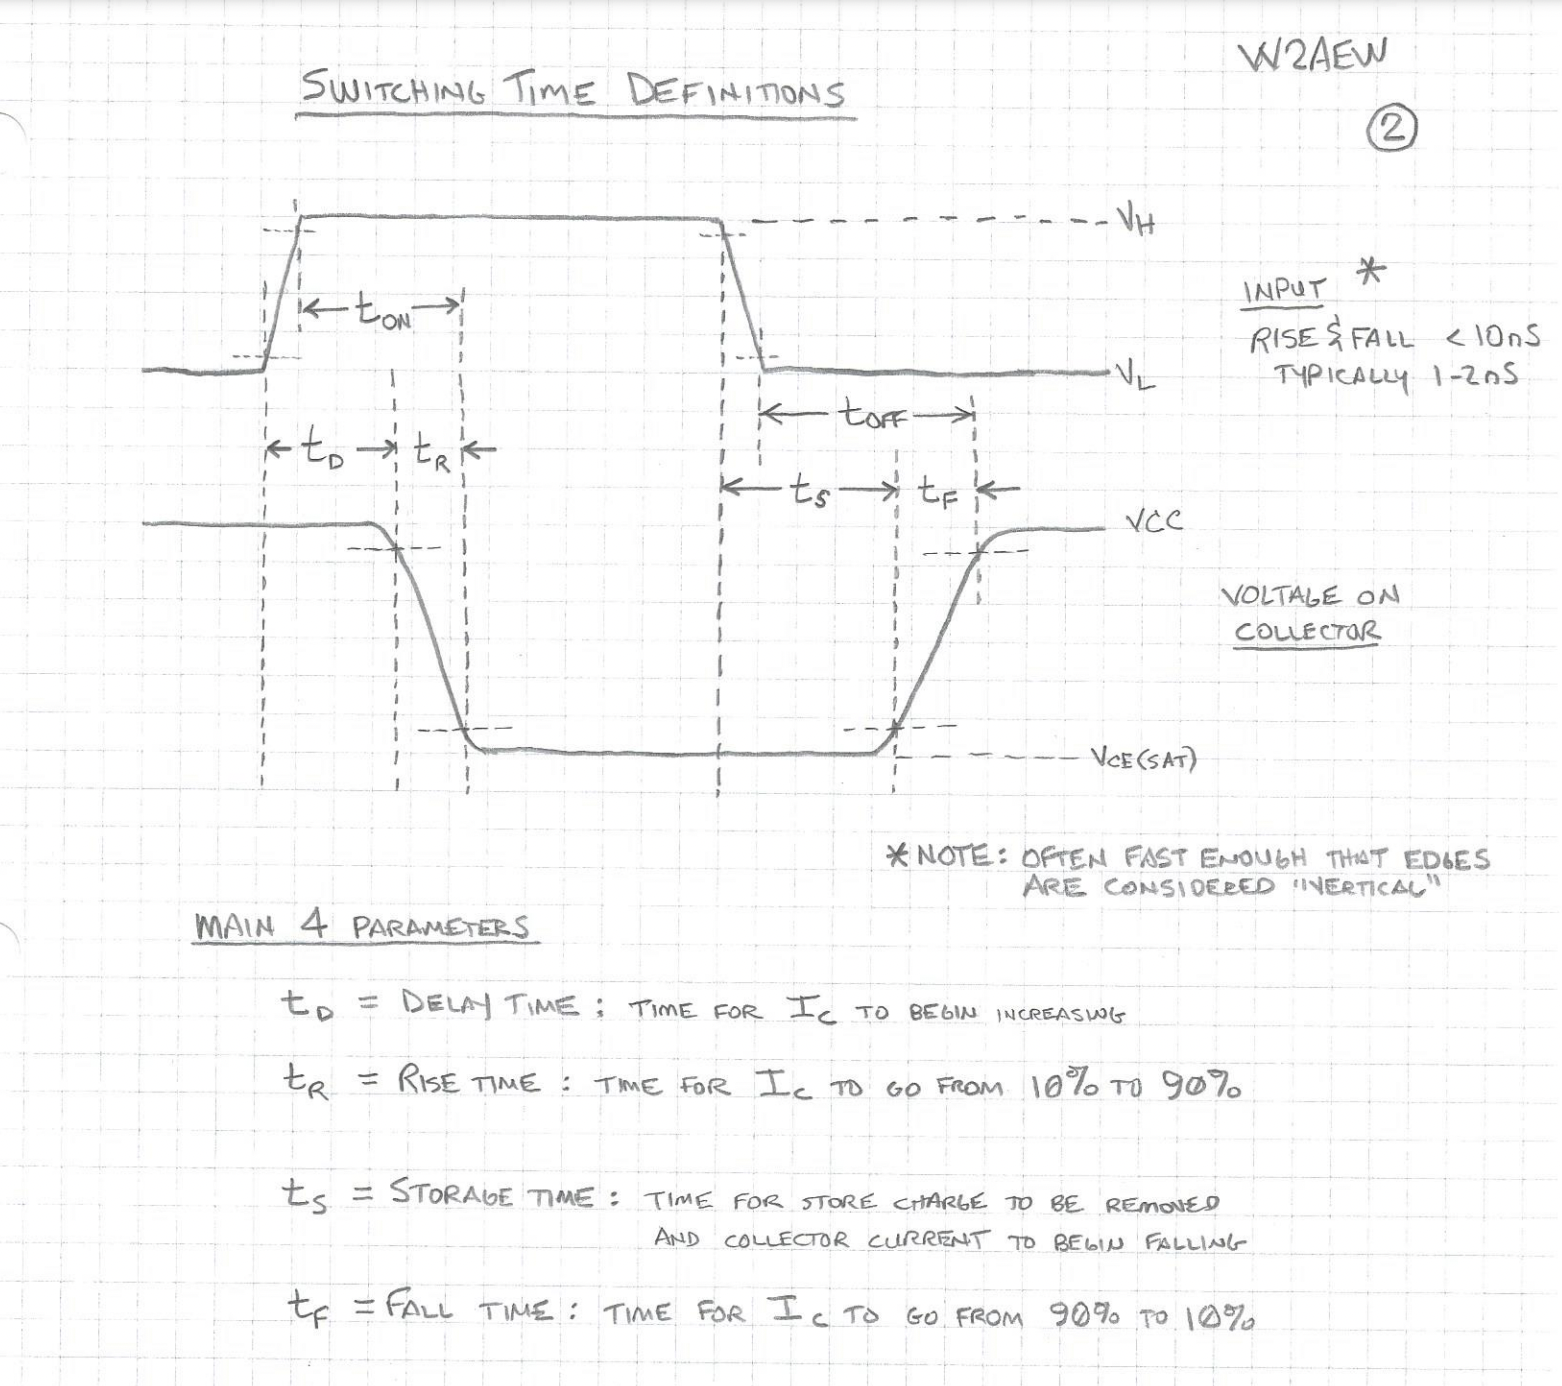 W2AEW
SWITCHING TIME DEFINITIONS
2
VH
INPUT *
tON
RISE & FALL < 10nS
VL
TYPICALLY 1-2nS
tOFF
tD tR
tS tF
VCC
VOLTAGE ON
COLLECTOR
VCE(SAT)
* NOTE: OFTEN FAST ENOUGH THAT EDGES
ARE CONSIDERED "VERTICAL"
MAIN 4 PARAMETERS
tD = DELAY TIME: TIME FOR IC TO BEGIN INCREASING
tR = RISE TIME: TIME FOR IC TO GO FROM 10% TO 90%
tS = STORAGE TIME: TIME FOR STORE CHARGE TO BE REMOVED
AND COLLECTOR CURRENT TO BEGIN FALLING
tF = FALL TIME: TIME FOR IC TO GO FROM 90% TO 10%